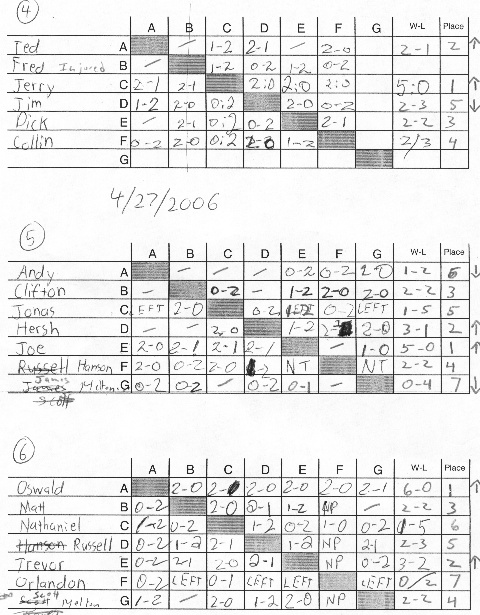 4
A B C D E F G W-L Place
Ted A — 1-2 2-1 — 2-0 2-1 2 ↑
Fred Injured B — 1-2 0-2 1-2 0-2
Jerry C 2-1 2-1 2:0 2:0 2:0 5:0 1 ↑
Jim D 1-2 2-0 0:2 2-0 0-2 2-3 5 ↓
Dick E — 2-1 0:2 0-2 2-1 2-2 3
Collin F 0-2 2-0 0:2 2-0 1-2 2/3 4
G
4/27/2006
5
A B C D E F G W-L Place
Andy A — — — 0-2 0-2 2-0 1-2 6 ↓
Clifton B — 0-2 — 1-2 2-0 2-0 2-2 3
Jonas C LEFT 2-0 0-2 0-2 LEFT 1-5 5
Hersh D — — 2-0 1-2 2-0 3-1 2 ↑
Joe E 2-0 2-1 2-1 2-1 — 1-0 5-0 1 ↑
Russell Hanson F 2-0 0-2 2-0 NT NT 2-2 4
James Melton G 0-2 0-2 — 0-2 0-1 — 0-4 7 ↓
Scott
6
A B C D E F G W-L Place
Oswald A 2-0 2-0 2-0 2-0 2-0 2-1 6-0 1 ↑
Matt B 0-2 2-0 2-1 1-2 NP — 2-2 3
Nathaniel C 1-2 0-2 1-2 0-2 1-0 0-2 1-5 6
Hanson Russell D 0-2 1-2 2-1 1-2 NP 2-1 2-3 5
Trevor E 0-2 2-1 2-0 2-1 NP 0-2 3-2 2 ↑
Orlandon F 0-2 LEFT 0-1 LEFT LEFT LEFT 0/2 7
Scott Melton G 1-2 — 2-0 1-2 2-0 NP 2-2 4